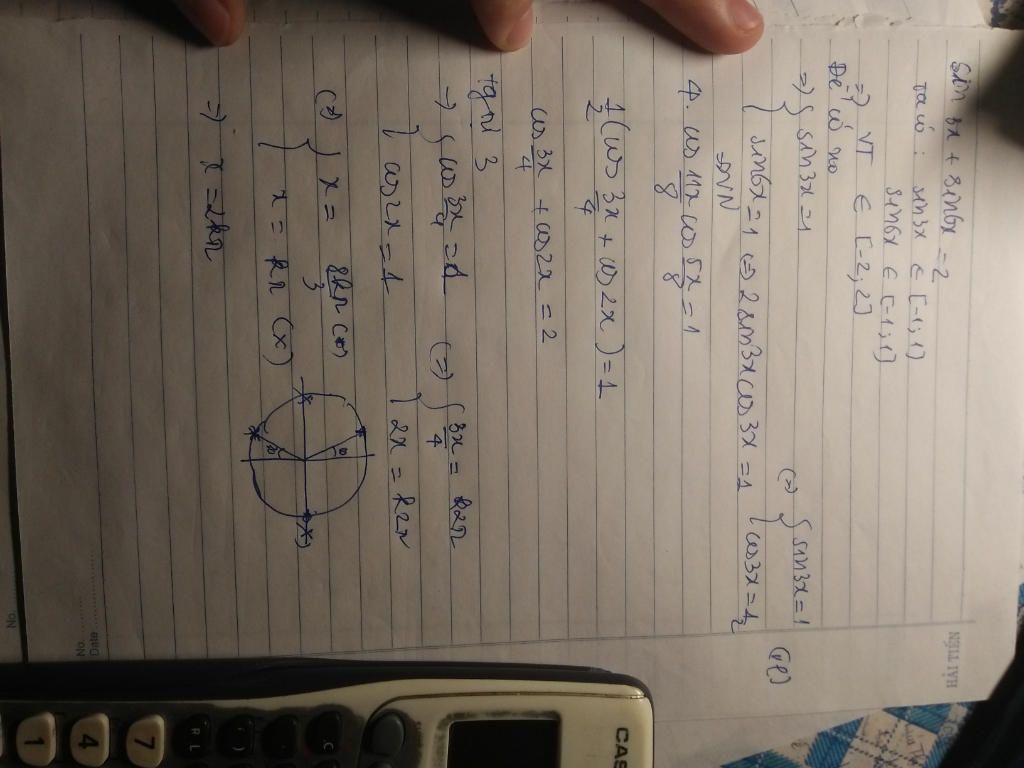 sin 3x + sin6x = 2
Ta có : sin3x ∈ [-1,1]
sin6x ∈ [-1,1]
=> VT ∈ [-2,2]
Để có no
=> { sin3x = 1
sin6x = 1 <=> 2 sin3x cos 3x = 1
<=> { sin3x = 1
cos3x = 1/2
(vl)
=> VN
4. cos 11x/8 cos 5x/8 = 1
1/2 (cos 3x/4 + cos 2x) = 1
cos 3x/4 + cos2x = 2
tg tự 3
→ { cos 3x/4 = 1
cos 2x = 1
(=) { 3x/4 = k2π
2x = k2π
(=) { x = 8kπ/3 (*)
x = kπ (x)
(x)
=> x = 2kπ
HẢI TIẾN
No.
Date
No.
CAS
7
4
1
R L
)
C